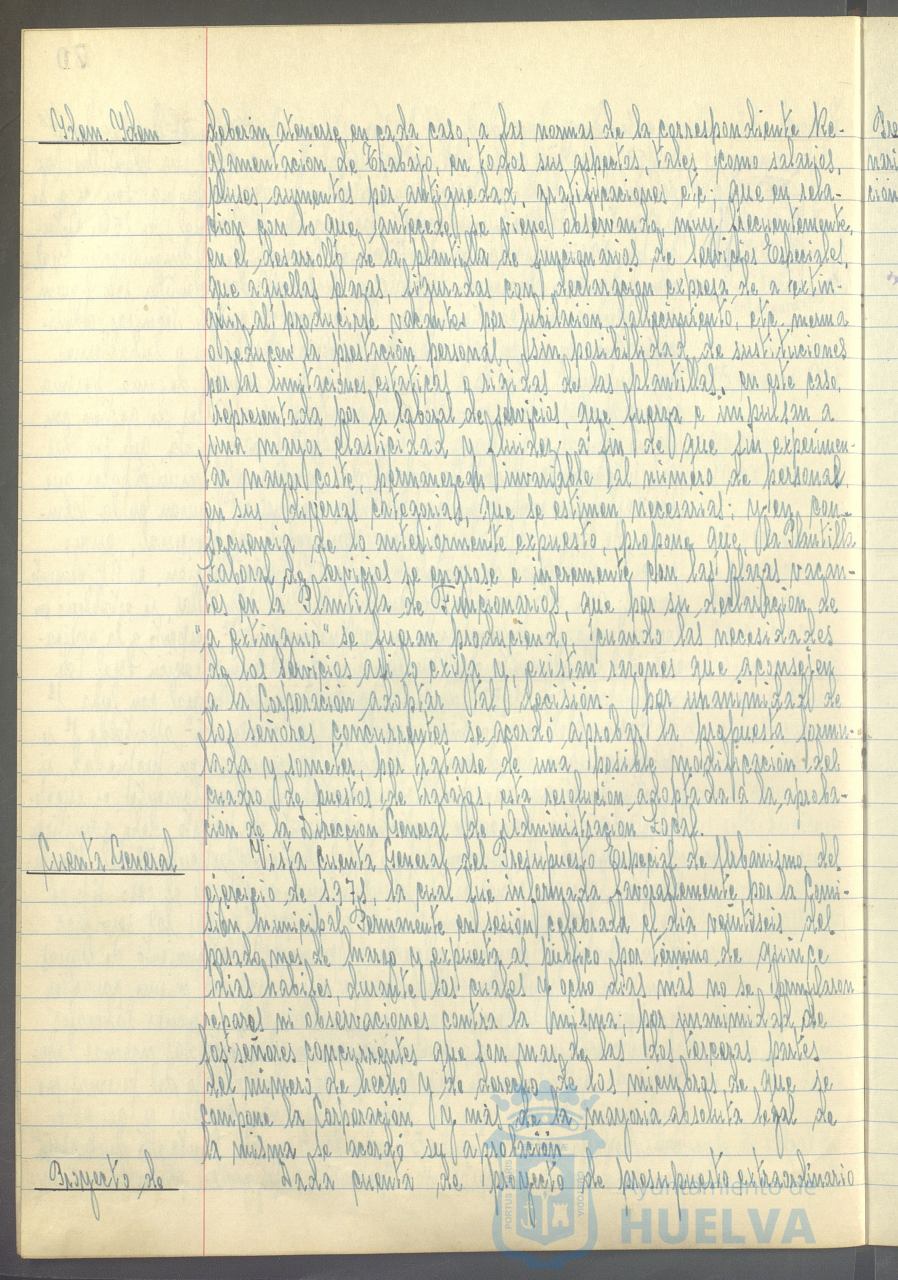 Idem. Idem
deberán atenerse, en cada caso, a las normas de la correspondiente Re-
glamentación de Trabajo, en todos sus aspectos, tales como salarios,
pluses, aumentos por antiguedad, gratificaciones etc; que en rela-
ción con lo que antecede, se viene observando, muy frecuentemente,
en el desarrollo de la plantilla de funcionarios de Servicios Especiales,
que aquellas plazas, figuradas con declaración expresa de a extin-
guir, al producirse vacantes por jubilación, fallecimiento, etc. merma
o reducen la prestación personal, sin posibilidad de sustituciones
por las limitaciones estáticas o rigidas de las plantillas, en este caso,
representada por la laboral de servicios, que fuerza e impulsan a
una mayor elasticidad y fluidez, a fin de que sin experimen-
tar mayor coste, permanezcan invariable al número de personal,
en sus diversas categorias, que se estimen necesarias; y en con-
secuencia de lo anteriormente expuesto, propone que, la Plantilla
Laboral de Servicios se engrose e incremente con las plazas vacan-
tes en la Plantilla de Funcionarios, que por su declaración de
"a extinguir" se fueran produciendo, cuando las necesidades
de los servicios asi lo exija y, existan razones que aconsejen
a la Corporación adoptar tal decisión; por unanimidad de
los señores concurrentes se acordó aprobar la propuesta formu-
lada y someter, por tratarse de una posible modificación del
cuadro de puestos de trabajos, esta resolución adoptada a la aproba-
ción de la Dirección General de Administración Local.
Cuenta General
Vista Cuenta General del Presupuesto Especial de Urbanismo, del
ejercicio de 1.973, la cual fue informada favorablemente por la Comi-
sión Municipal Permanente en sesión celebrada el dia veintiseis del
pasado mes de marzo y expuesta al público por término de quince
dias habiles, durante los cuales y ocho dias más no se formularon
reparos ni observaciones contra la misma; por unanimidad de
los señores concurrentes que son mas de las dos terceras partes
del número de hecho y de derecho de los miembros de que se
compone la Corporación y más de la mayoria absoluta legal de
la misma se acordó su aprobación
Proyecto de
Dada cuenta de proyecto de presupuesto extraordinario
Ayuntamiento de
HUELVA